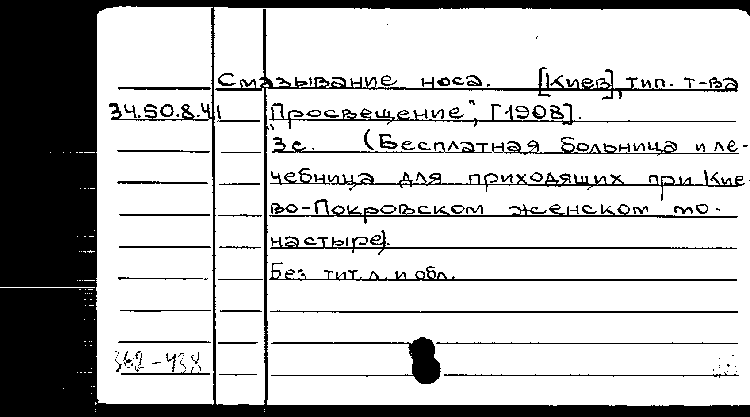 Смазывание носа. [Киев], тип. т-ва
34.50.8.41 "Просвещение", [1908].
3с. (Бесплатная больница и ле-
чебница для приходящих при Кие-
во-Покровском женском мо-
настыре).
Без тит. л. и обл.